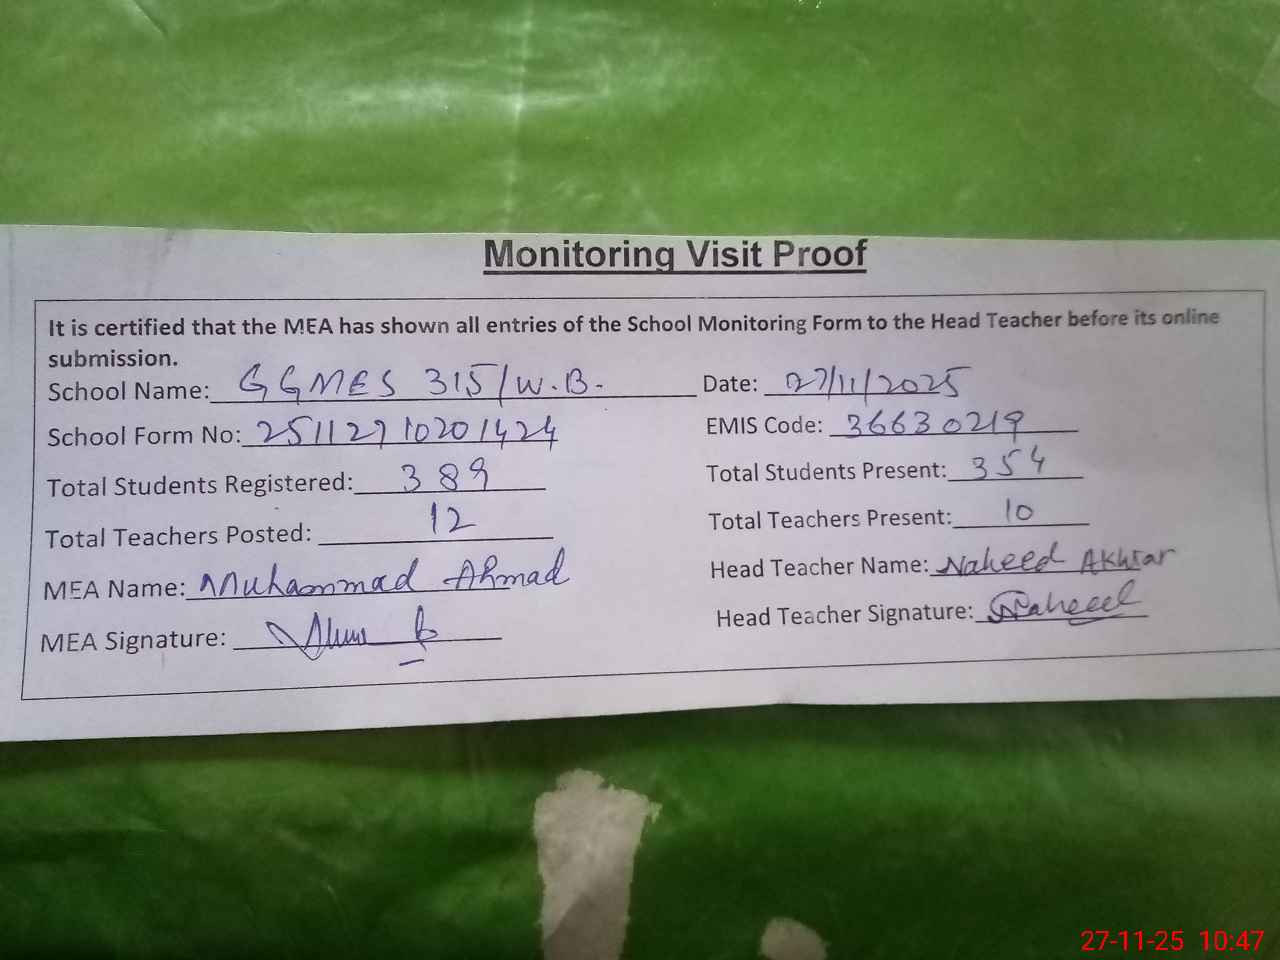 Monitoring Visit Proof
It is certified that the MEA has shown all entries of the School Monitoring Form to the Head Teacher before its online
submission.
School Name: GGMES 315/W.B. Date: 27/11/2025
School Form No: 25112710201424 EMIS Code: 36630219
Total Students Registered: 389 Total Students Present: 354
Total Teachers Posted: 12 Total Teachers Present: 10
MEA Name: Muhammad Ahmad Head Teacher Name: Naheed Akhtar
MEA Signature: Head Teacher Signature: Naheed
27-11-25 10:47